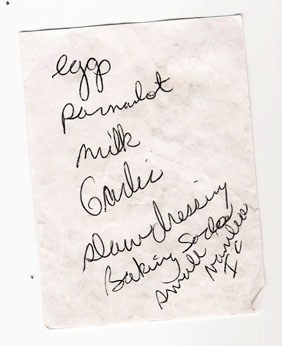 eggs
Parmalat
milk
Garlic
slaw dressing
Baking Soda
small vanilla
I C